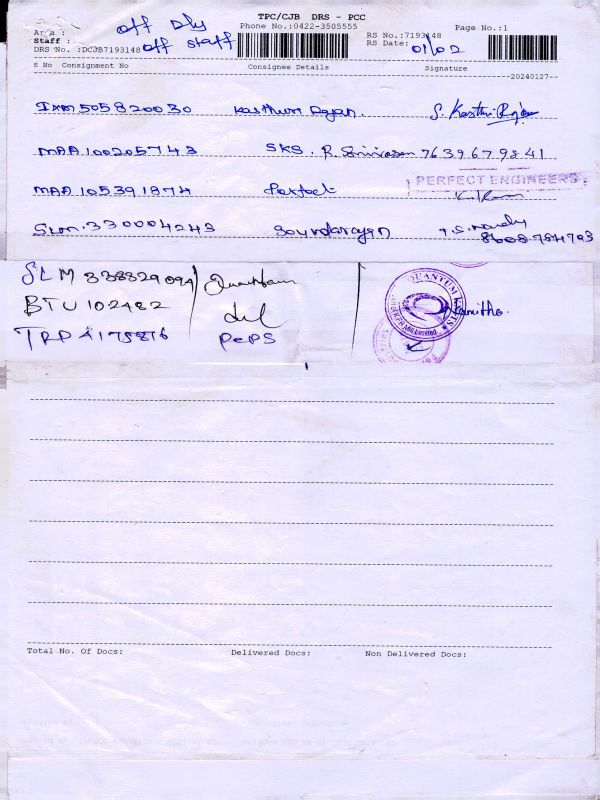 TPC/CJB DRS - PCC
Area : off Dly
Phone No.:0422-3505555
Page No.:1
Staff : off staff
RS No.:7193148
DRS No. :DCJB7193148
RS Date: 01/02
S No Consignment No Consignee Details Signature
20240127
505820030 Kasthuri Rajan. S. Kasthuri Rajan
MAA 100205743 SKS. R. Srinivasan 7639679841
MAA 105391874 Perfect PERFECT ENGINEERS
330004243 Soundarajan 8608784703
SLM 338329094 Quantum QUANTUM
BTU 102482
TRP A175816 PePS
Total No. Of Docs: Delivered Docs: Non Delivered Docs: